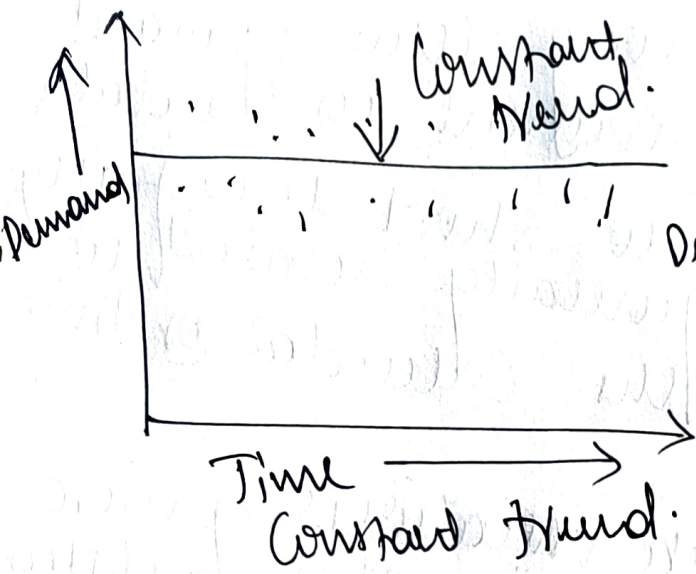 Constant
trend.
Demand
D
Time
Constant trend.